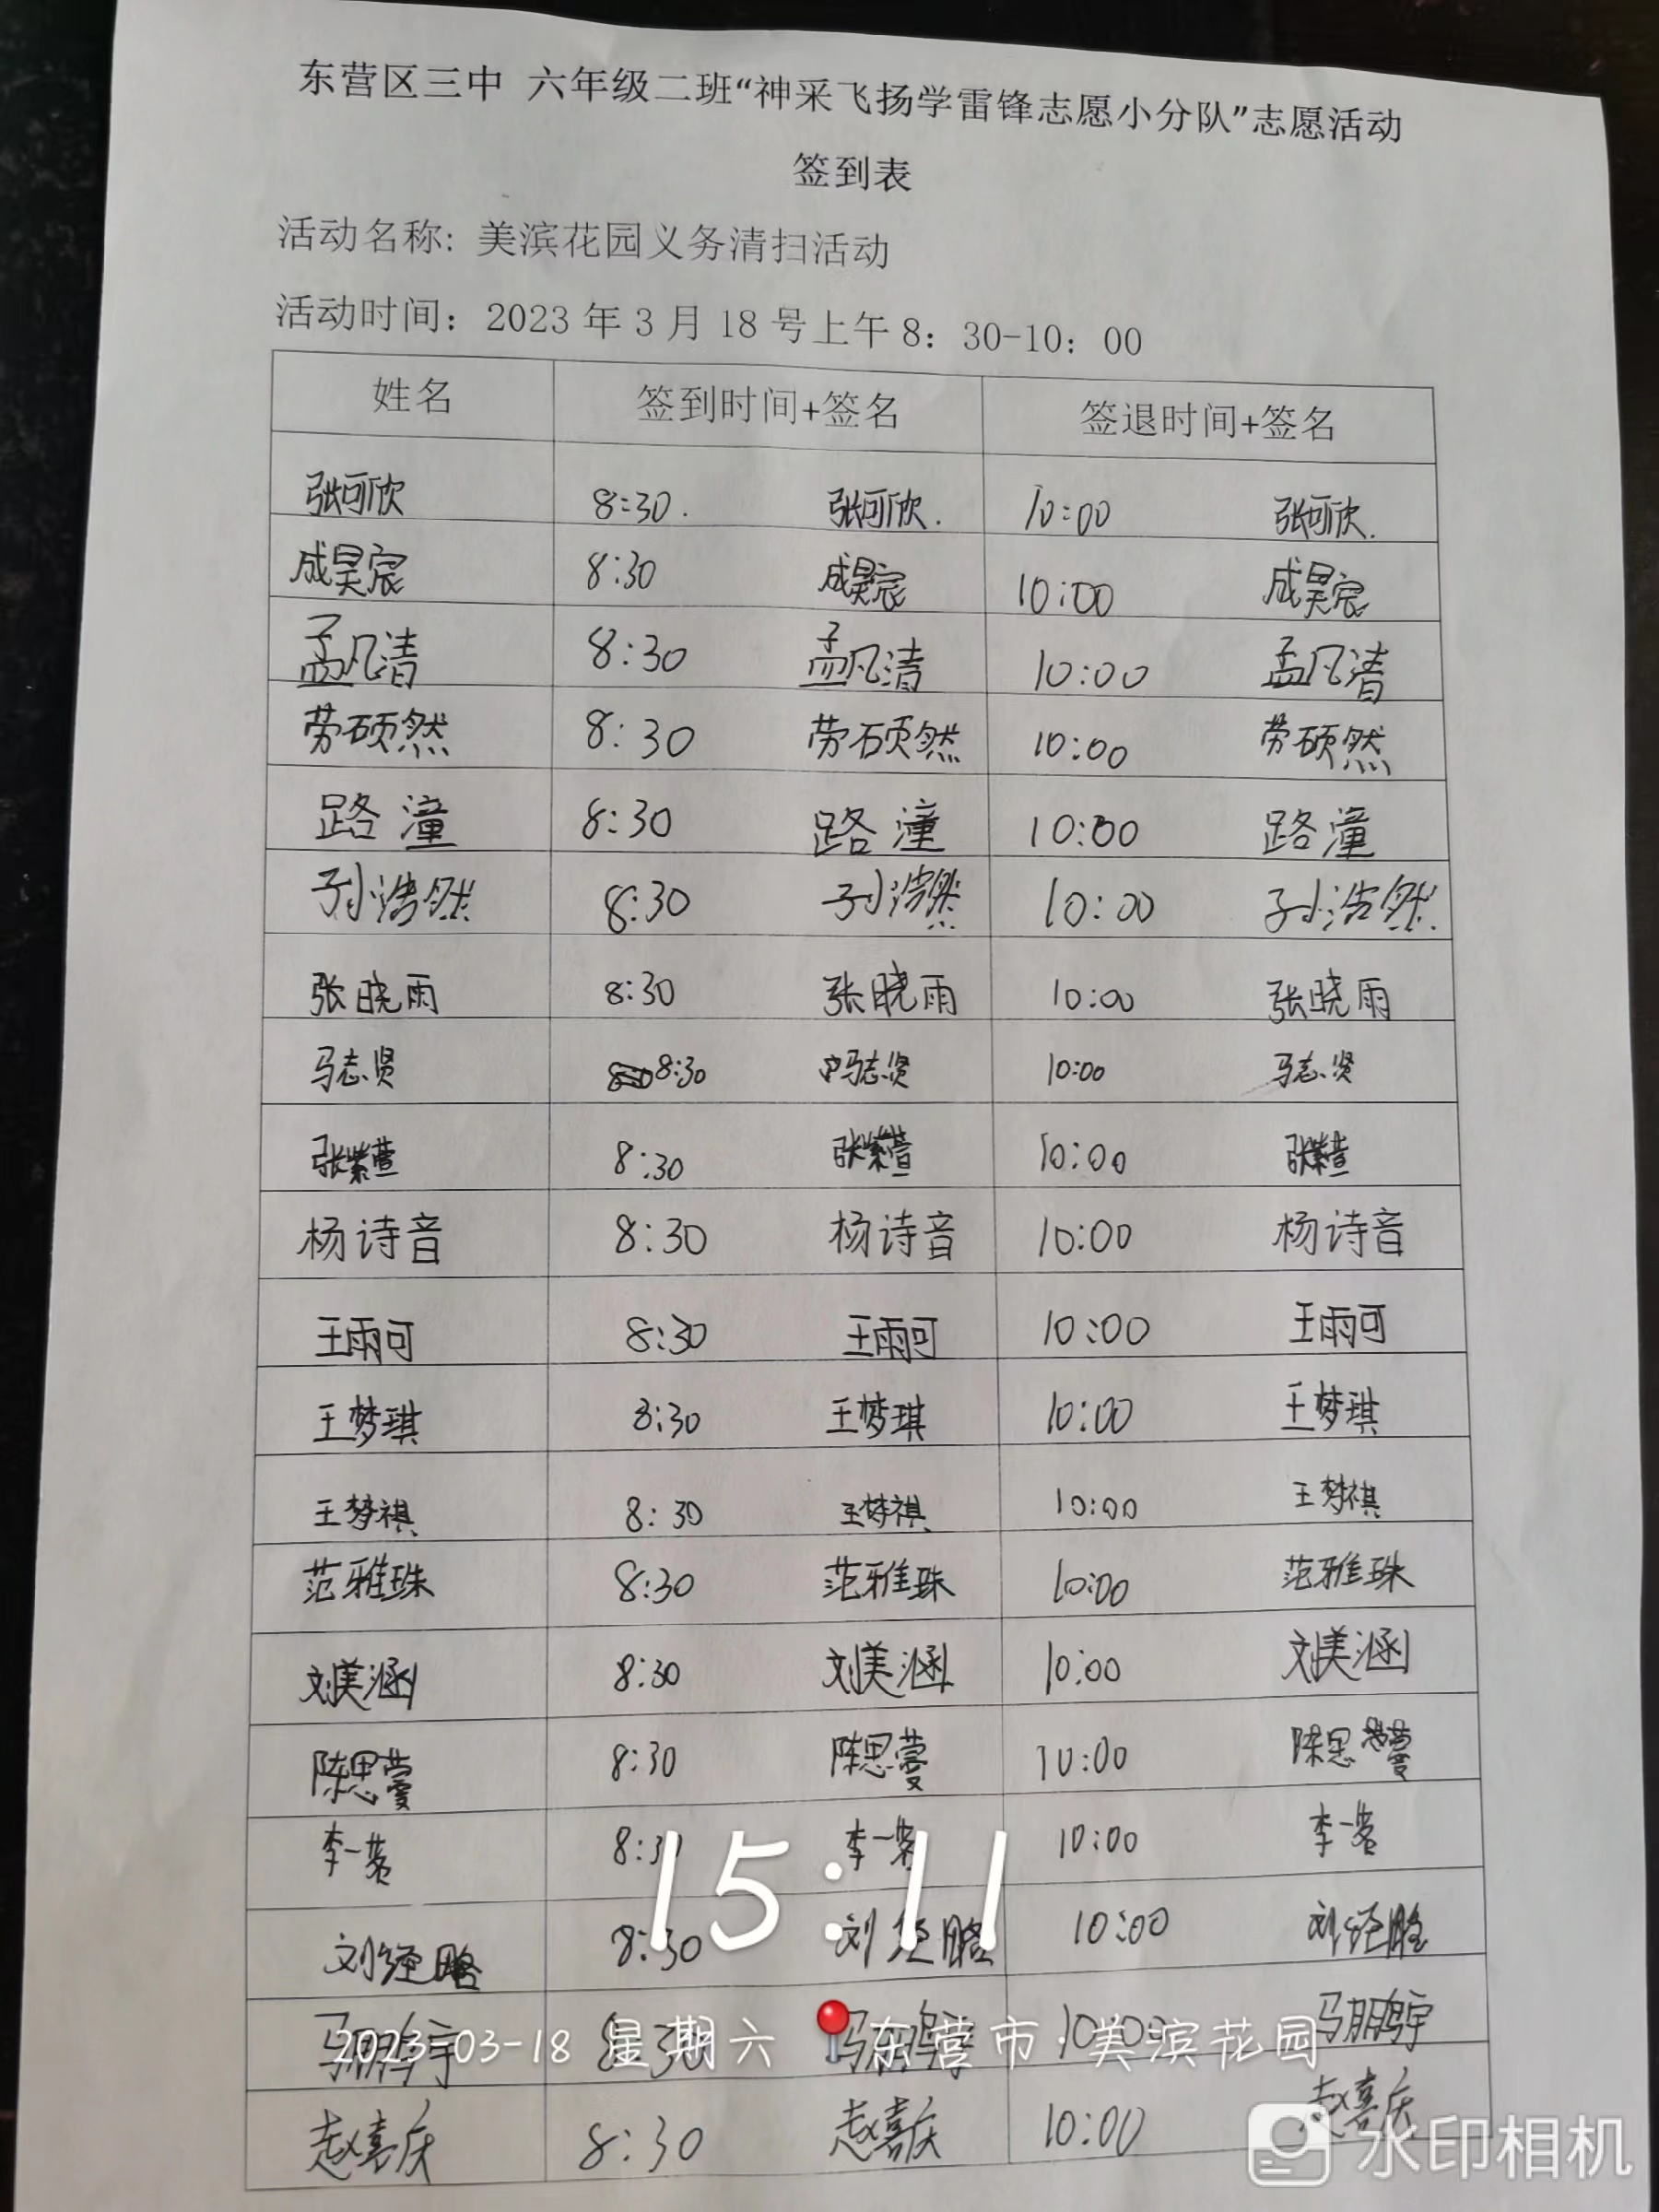 东营区三中 六年级二班“神采飞扬学雷锋志愿小分队”志愿活动
签到表
活动名称: 美滨花园义务清扫活动
活动时间：2023年3月18号上午8：30-10：00
姓名 签到时间+签名 签退时间+签名
张可欣 8:30. 张可欣. 10:00 张可欣.
成昊宸 8:30 成昊宸 10:00 成昊宸
孟凡清 8:30 孟凡清 10:00 孟凡清
劳硕然 8:30 劳硕然 10:00 劳硕然
路潼 8:30 路潼 10:00 路潼
孙浩然 8:30 孙浩然 10:00 孙浩然
张晓雨 8:30 张晓雨 10:00 张晓雨
马志贤 8:30 马志贤 10:00 马志贤
张紫萱 8:30 张紫萱 10:00 张紫萱
杨诗音 8:30 杨诗音 10:00 杨诗音
王雨可 8:30 王雨可 10:00 王雨可
王梦琪 8:30 王梦琪 10:00 王梦琪
王梦祺 8:30 王梦祺 10:00 王梦祺
范雅珠 8:30 范雅珠 10:00 范雅珠
刘美涵 8:30 刘美涵 10:00 刘美涵
陈思蔓 8:30 陈思蔓 10:00 陈思蔓
李一 8:30 李一 10:00 李一
15:11
刘经 8:30 刘经 10:00 刘经
马鹏宇 8:30 马鹏宇 10:00 马鹏宇
2023-03-18 星期六 东营市·美滨花园
赵喜庆 8:30 赵喜庆 10:00 赵喜庆
水印相机